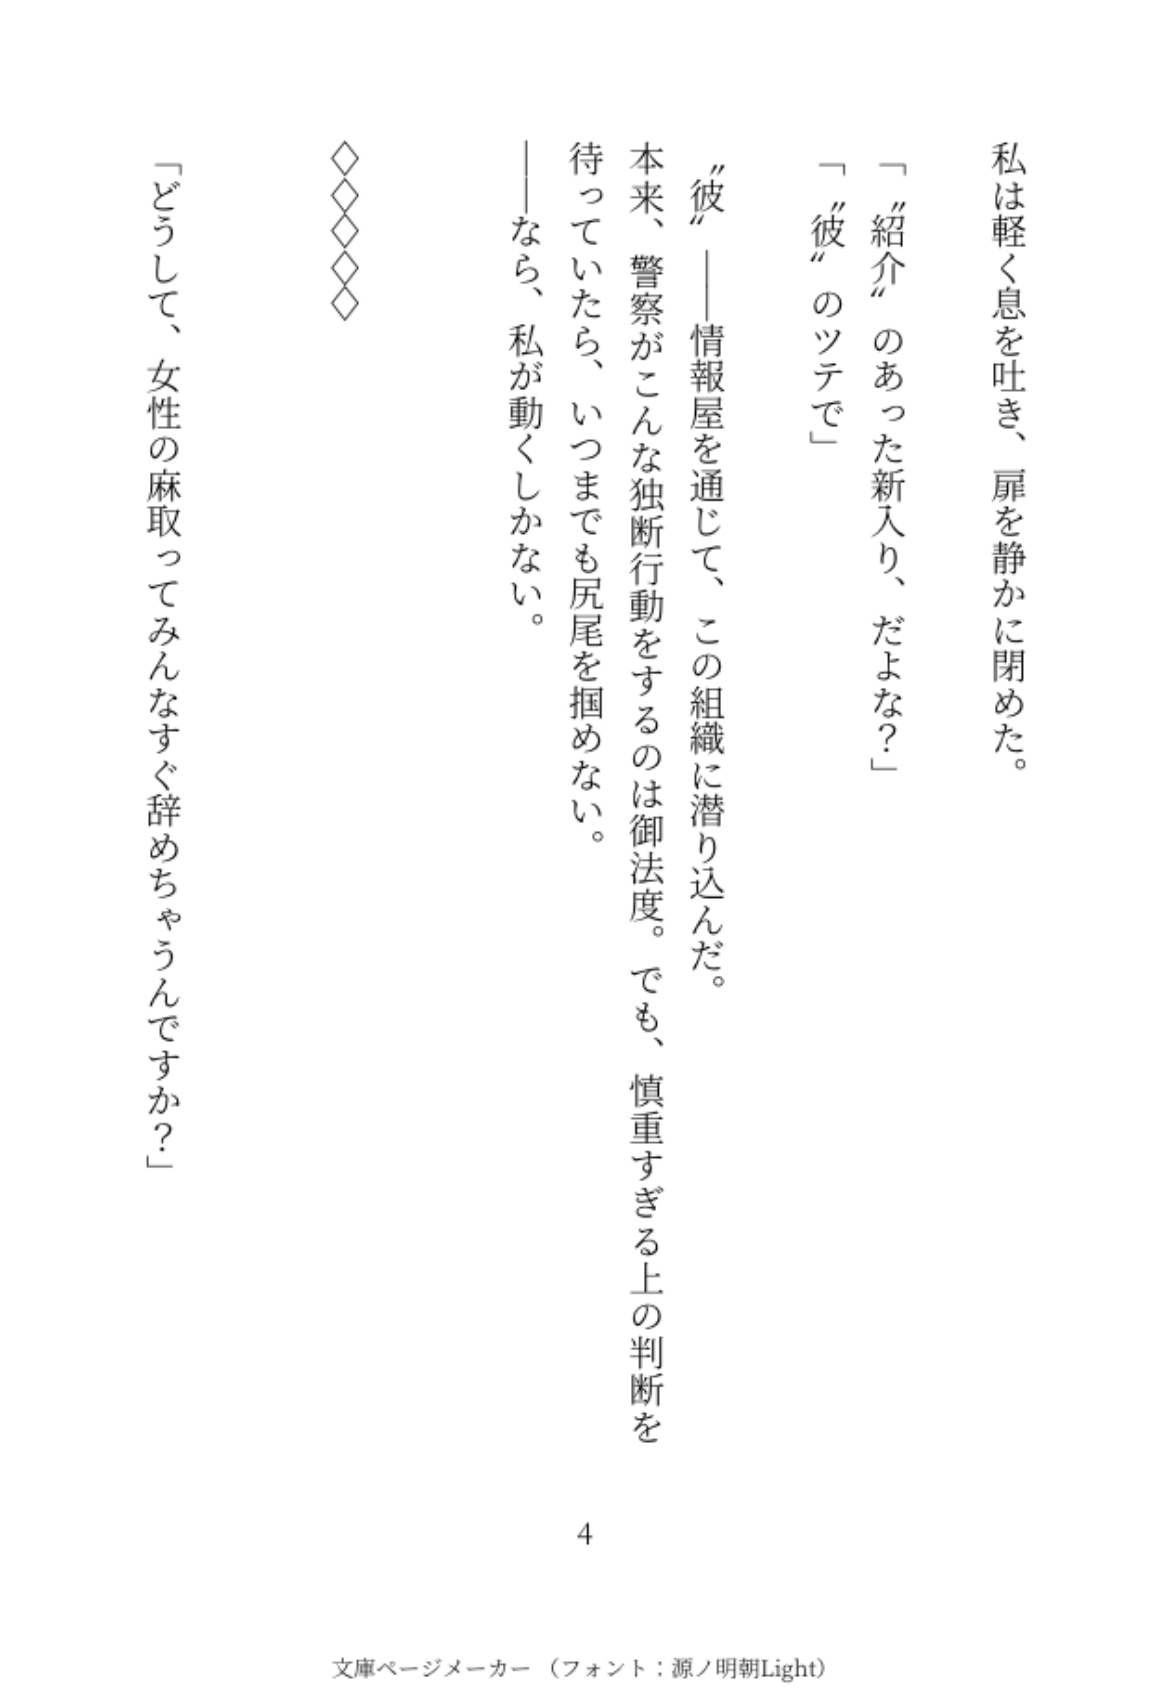 私は軽く息を吐き、扉を静かに閉めた。
「〝紹介〟のあった新入り、だよな？」
「〝彼〟のツテで」
〝彼〟――情報屋を通じて、この組織に潜り込んだ。
本来、警察がこんな独断行動をするのは御法度。でも、慎重すぎる上の判断を
待っていたら、いつまでも尻尾を掴めない。
――なら、私が動くしかない。
◇◇◇◇◇
「どうして、女性の麻取ってみんなすぐ辞めちゃうんですか？」
4
文庫ページメーカー （フォント：源ノ明朝Light）